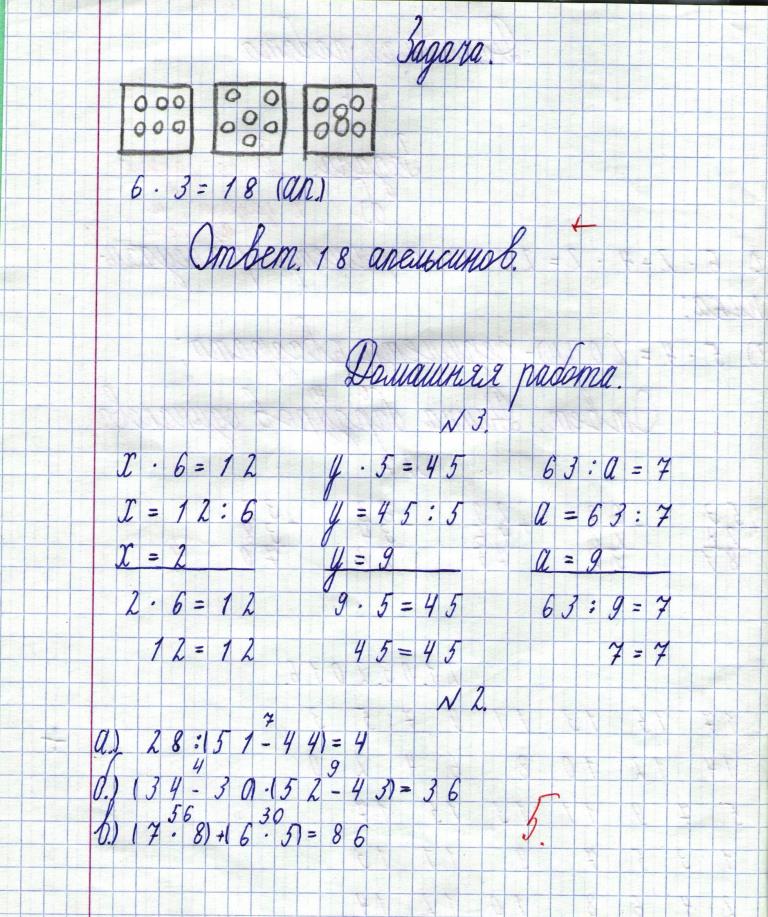 Задача.
6 · 3 = 18 (ап.)
Ответ. 18 апельсинов.
Домашняя работа.
№ 3.
x · 6 = 12 y · 5 = 45 63 : a = 7
x = 12 : 6 y = 45 : 5 a = 63 : 7
x = 2 y = 9 a = 9
2 · 6 = 12 9 · 5 = 45 63 : 9 = 7
12 = 12 45 = 45 7 = 7
№ 2.
7
а) 28 : (51 - 44) = 4
4 9
б.) (34 - 30) · (52 - 43) = 36
56 30
в.) (7 · 8) + (6 · 5) = 86
5.